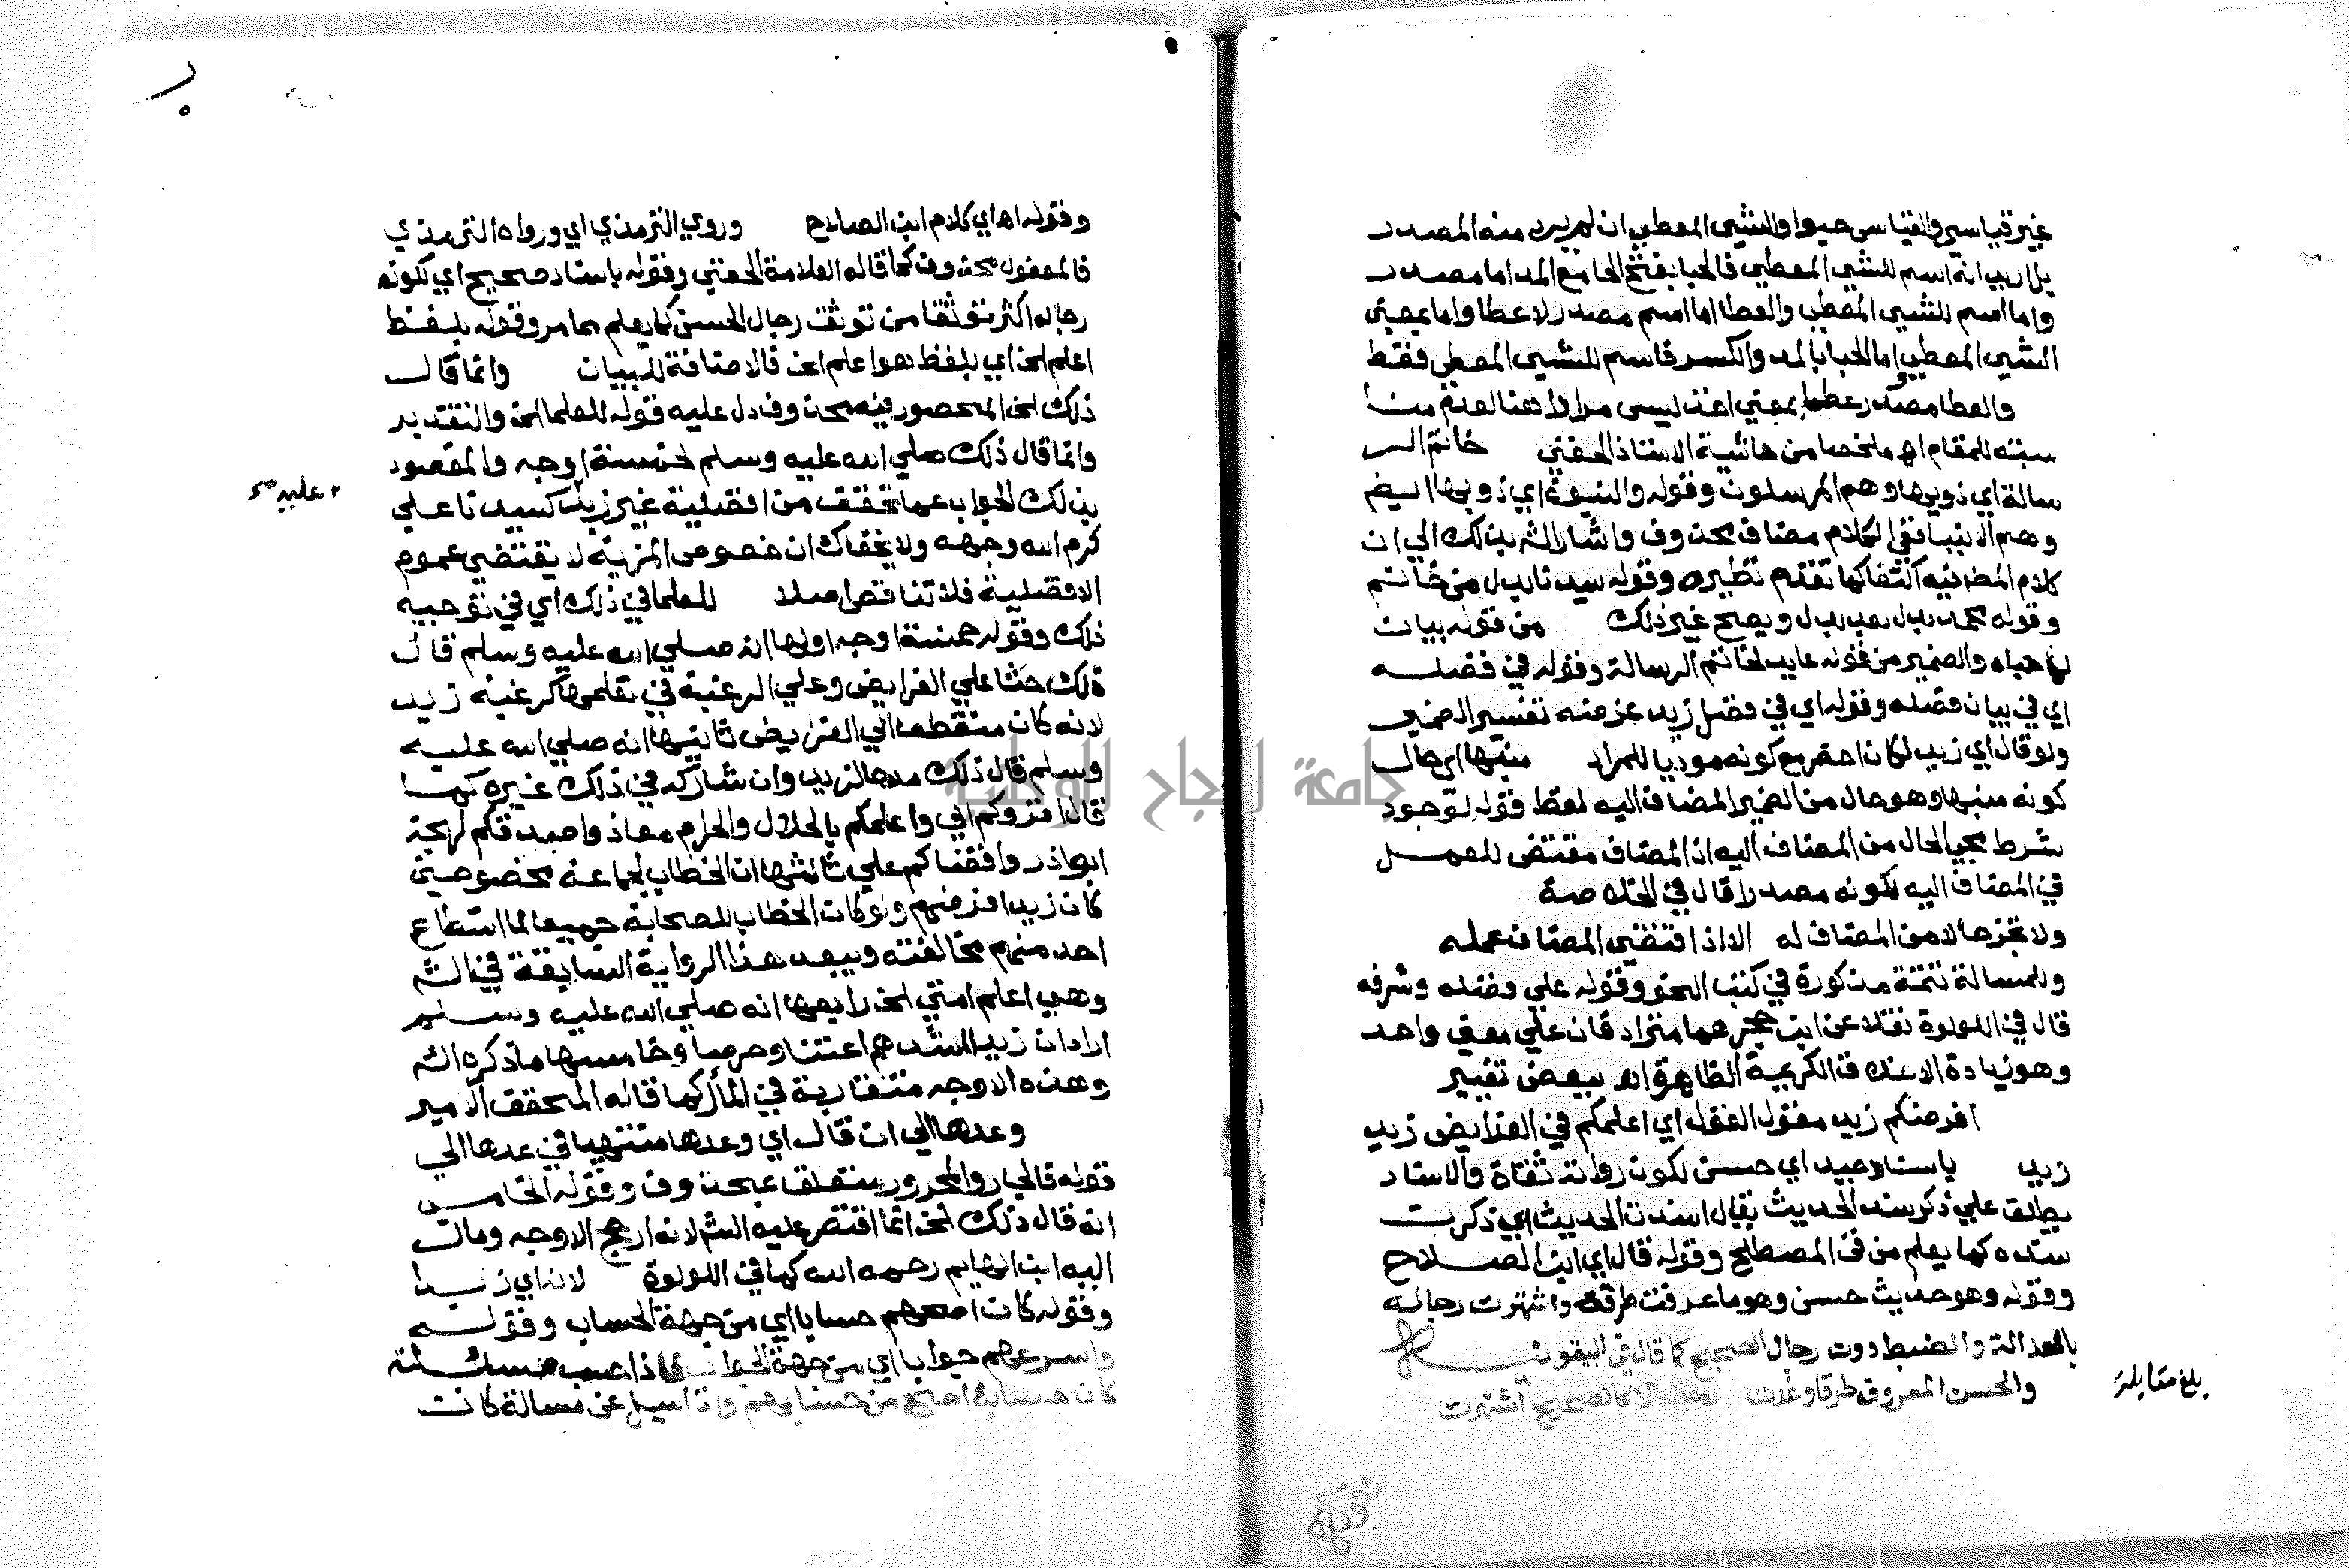 غير قياسي والقياسي حبوا والشيء المعطي ان لم يرد منه المصدر
بل اريد انه اسم للشيء المعطي فالحبا بفتح الحا مع المد اما مصدر
واما اسم للشيء المعطي والعطا اما اسم مصدر لاعطا واما بمعني
الشيء المعطي اما الحبا بالمد والكسر فاسم للشيء المعطي فقط
والعطا مصدر عطا بمعني اخذ ليس مرادا هنا لعدم منا
سبته للمقام اه ملخصا من حاشية الاستاذ الحفني خاتم الر
سالة اي ذويها وهم المرسلون وقوله والنبوة اي ذويها ايضا
وهم الانبيا ففي الكلام مضاف محذوف واشار الش بذلك الي ان
كلام المص فيه اكتفا كما تقدم نظيره وقوله سيدنا بدل من خاتم
وقوله محمد بدل بعد بدل ويصح غير ذلك من قوله بيان
لما حباه والضمير من قوله عايد لخاتم الرسالة وقوله في فضله
اي في بيان فضله وقوله اي في فضل زيد غرضه تفسير الضمير
ولو قال اي زيد لكان اخصر مع كونه موديا للمراد منبها اي حال
كونه منبها وهو حال من الضمير المضاف اليه لفظ قوله لوجود
شرط مجي الحال من المضاف اليه اذ المضاف مقتض للعمل
في المضاف اليه لكونه مصدرا قال في الخلاصة
ولا تجز حالا من المضاف له الا اذا اقتضي المضاف عمله
وللمسالة تتمة مذكورة في كتب النحو وقوله علي فضله وشرفه
قال في اللولوة نقلا عن ابن حجر هما مترادفان علي معني واحد
وهو زيادة الاخلاق الكريمة الظاهرة اه ببعض تغيير
افرضكم زيد مقول القول اي اعلمكم في الفرايض زيد
زيد باسناد جيد اي حسن لكون رواته ثقاة والاسناد
يطلق علي ذكر سند الحديث يقال اسندت الحديث اي ذكرت
سنده كما يعلم من فن المصطلح وقوله قال اي ابن الصلاح
وقوله وهو حديث حسن وهو ما عرفت طرقه واشتهرت رجاله
بالعدالة والضبط دون رجال الصحيح كما قال في البيقونية
والحسن المعروف طرقا وغدت رجاله لا كالصحيح اشتهرت
بلغ مقابلة
وقوله اه اي كلام ابن الصلاح وروي الترمذي اي ورواه الترمذي
فالمفعول محذوف كما قاله العلامة الحفني وقوله باسناد صحيح اي لكونه
رجاله اكثر توثقا من توثق رجال الحسن كما يعلم مما مر وقوله بلفظ
اعلم الخ اي بلفظ هو اعلم الخ فالاضافة للبيان وانما قال
ذلك الخ المحصور فيه محذوف دل عليه قوله للعلما الخ والتقدير
وانما قال ذلك صلي الله عليه وسلم لخمسة اوجه والمقصود
بذلك الجواب عما تحقق من افضلية غير زيد كسيدنا علي
عليه صح
كرم الله وجهه ولا يخفاك ان خصوص المزية لا يقتضي عموم
الافضلية فلا تناقض اصلا للعلما في ذلك اي في توجيه
ذلك وقوله خمسة اوجه اولها انه صلي الله عليه وسلم قال
ذلك حثا علي الفرايض وعلي الرغبة في تعلمها كرغبة زيد
لانه كان منقطعا الي الفرايض ثانيها انه صلي الله عليه
وسلم قال ذلك مدحا لزيد وان شاركه في ذلك غيره كما
قال اقروكم ابي واعلمكم بالحلال والحرام معاذ واصدقكم لهجة
ابو اذر واقضاكم علي ثالثها ان الخطاب لجماعة مخصوصين
كان زيد افرضهم ولو كان الخطاب للصحابة جميعا لما استطاع
احد منهم مخالفته ويبعد هذا الرواية السابقة في الش
وهي اعلم امتي الخ رابعها انه صلي الله عليه وسلم
اراد ان زيد اشدهم اعتنا وحرصا وخامسها ما ذكره الش
وهذه الاوجه متقاربة في المال كما قاله المحقق الامير
وعدها الي ان قال اي وعدها منتهيا في عدها الي
قوله فالجار والمجرور متعلق بمحذوف وقوله الخامس
انه قال ذلك الخ انما اقتصر عليه الش لانه ارجح الاوجه ومال
اليه ابن الهايم رحمه الله كما في اللولوة لانه اي زيدا
وقوله كان اصحهم حسابا اي من جهة الحساب وقوله
واسرعهم جوابا اي من جهة الجواب فاذا حسب مسئلة
كان حسابه اصح من حسابهم واذا سيل عن مسالة كانت
جامعة النجاح الوطنية